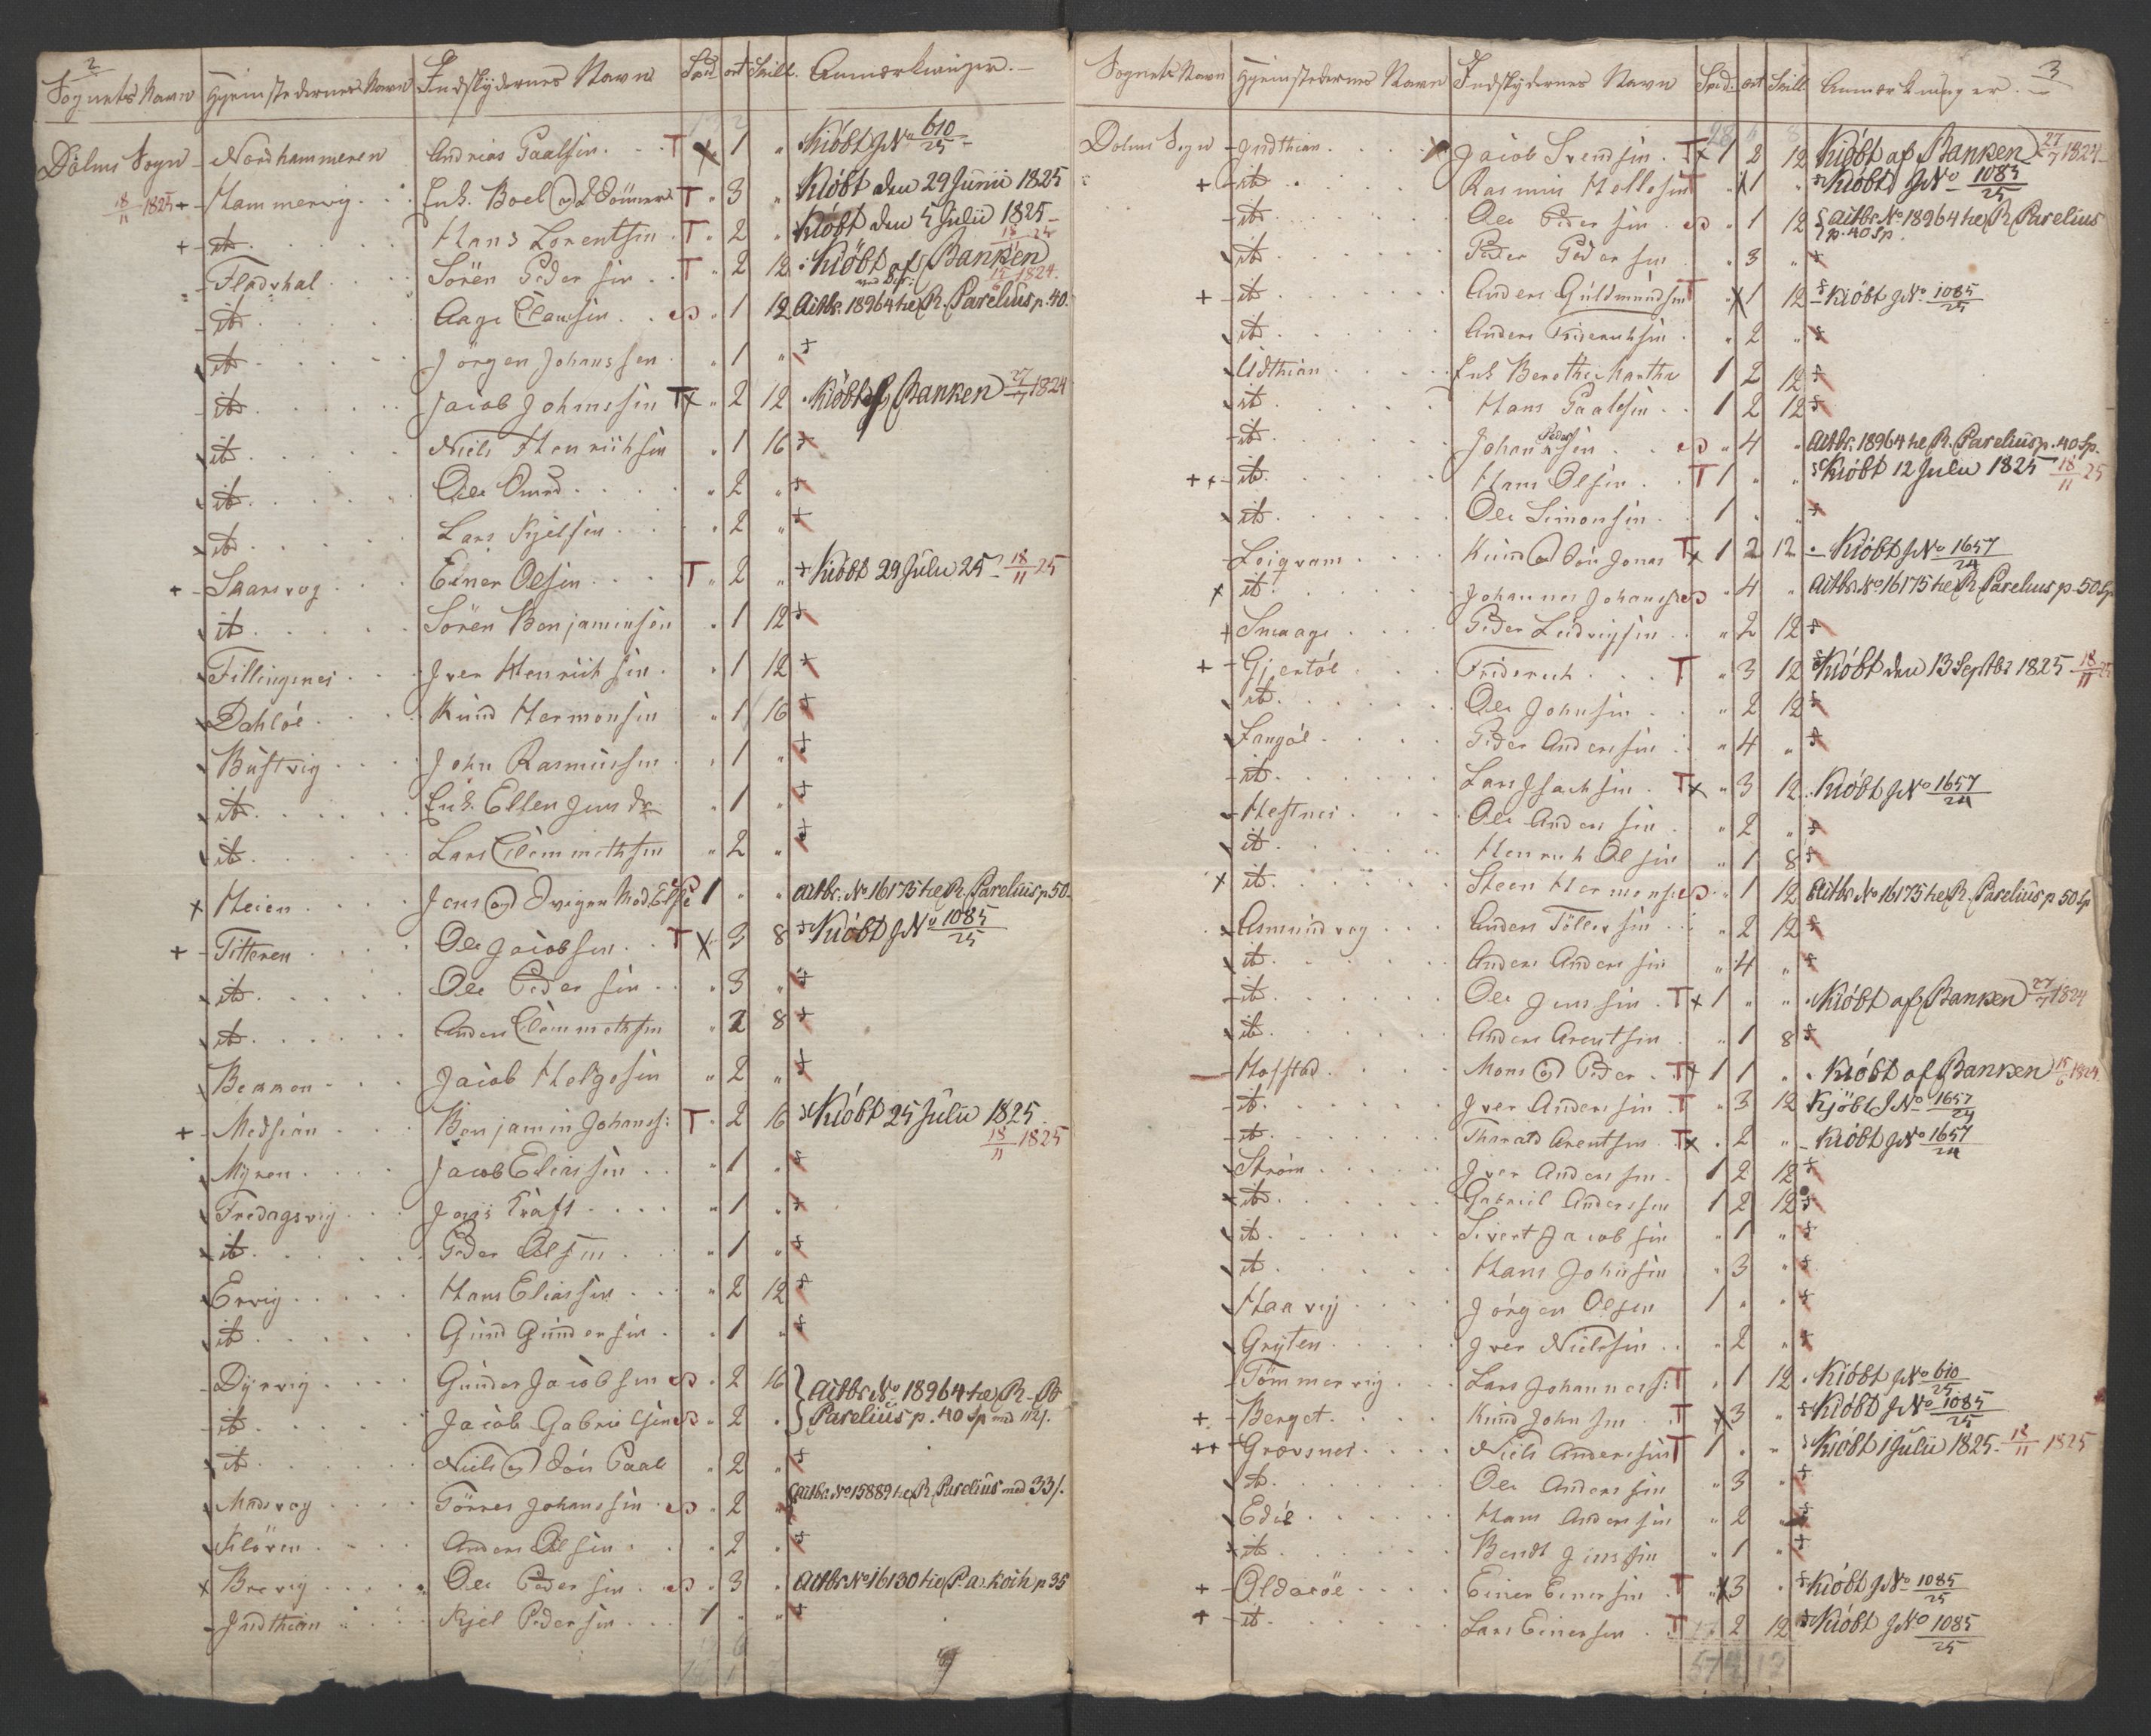 2
Sognets Navn Hjemstedernes Navn Indskydernes Navn Spd. ort Skill. Anmærkninger.
Dolms Sogn Nordhammeren Andrias Paalsen T x 1 " Kiöbt J No 610/25
18/11 1825 + Hammervig Enk. Boel og 2 Sönner T " 3 " Kiöbt den 29 Junii 1825
+ it Hans Lorentsen T " 2 " Kiöbt den 5 Julii 1825 18/11 25
Fladvhal Sören Pedersen T " 2 12 Kiöbt af Banken 15/6 1824
it Aage Clausen " 1 12 Actbr. 18964 he R. Parelius p. 40.
it Jörgen Johanssen " 1 "
it Jacob Johnssen T x " 2 12 Kiöbt af Banken 27/7 1824
it Niels Henrichsen " 1 16
it Ole Smed " 2 "
it Lars Kjelsen " 2 "
+ Skarsvog Einer Olsen T " 2 " Kiöbt 29 Julii 25 18/11 25
it Sören Benjaminsen " 1 12
Fillingsnes Iver Henrichsen " 1 12
Dahlöe Knud Hermonsen " 1 16
Bustvig John Rasmussen " 1 "
it Enk. Ellen Jensdr " 1 "
it Lars Clemmetsen " 2 "
x Heien Jens og Svigermod. Else 1 " " actbr. No 16175 he R. Parelius p 50.
+ Titteren Ole Jacobsen T x 3 8 Kiöbt J No 1085/25
it Ole Pedersen " 3 "
it Anders Clemmetsen " 2 8
Bekken Jacob Helgesen " 2 "
+ Medsian Benjamin Johanss: T " 2 16 Kiöbt 25 Julii 1825 18/11 1825
Myren Jacob Eliassen " 1 "
Fredagsvig Jens Kraft " 1 "
it Peder Olsen " 1 "
Ervig Hans Eliassen " 2 12
it Gund Gundersen " 1 "
Dyrvig Gunder Jacobsen " 2 16 Actbr No 18964 he R. Br
it Jacob Gabrielsen " 2 " Parelius p. 40 Sp med 112 s.
it Niels og Sön Paal " 2 "
Madsvog Törres Johanssen " 2 " Actbr No 15889 he R. Parelius med 33 s.
Klöven Anders Olsen " 2 "
x Brevig Ole Pedersen " 3 " Actbr No 16130 he P. a. Koch p 35
Indthian Kjel Pedersen 1 " "
3
Sognets Navn Hjemstedernes Navn Indskydernes Navn Spd. ort Skill Anmærkninger.
Dolms Sogn Indthian Jacob Svendsen T x 1 2 12 Kiöbt af Banken 27/7 1824
+ it Rasmus Hellesen T x 1 " Kiöbt J No 1085/25
it Ole Pedersen " 1 12 Actbr No 18964 he R Parelius
p. 40 Sp.
it Peder Pedersen " 3 "
+ it Anders Guldmundsen T x 1 12 Kiöbt J No 1085/25
it Anders Friderichsen " 2 "
Udthian Enk Berethe Martha 1 2 12
it Hans Paalsen 1 2 12
it Johan Pedersen " 4 " Actbr. 18964 he R. Parelius p. 40 Sp.
++ it Hans Olsen T 1 " " Kiöbt 12 Julii 1825 18/11 25
it Ole Simonsen 1 " "
Leigvam Knud og Sön Jonas T x 1 2 12 Kiöbt J No 1657/24
x it Johannes Johanssen " 4 " Actbr. No 16175 he R Parelius p. 50 Sp
Smaage Peder Ludvigsen " 2 12
+ Gjertöe Friderich T " 3 12 Kiöbt den 13 Septbr 1825 18/11 25
it Ole Johnsen " 2 12
Langöe Peder Anderssen " 4 "
it Lars Isachsen T x " 3 12 Kiöbt J No 1657/24
Hestnes Ole Andersen " 2 "
it Henrich Olsen " 1 8
x it Steen Hermons: " 1 12 Actbr No 16175 he R. Parelius p 50 Sp
Asmundvog Anders Töllefsen " 2 12
it Anders Andersen " 4 "
it Ole Jenssen T x 1 " " Kiöbt af Banken 27/7 1824
it Anders Arentsen " 1 8
Hofstad Mons og Peder T x 1 1 " Kiöbt af Banken 15/6 1824
it Iver Andersen T " 3 12 Kjöbt J No 1657/24
it Tharald Arentsen T x " 2 " Kiöbt J No 1657/24
Ström Iver Andersen 1 2 12
it Gabriel Anderssen 1 2 12
it Sivert Jacobsen " 1 "
it Hans Johnsen " 3 "
Haavig Jörgen Olsen 1 " "
Gryten Iver Nielssen " 2 "
Tömmervig Lars Johanness: T " 1 12 Kiöbt J No 610/25
+ Berget Knud Johnsen T x 3 " Kiöbt J No 1085/25
++ Grövsnes Niels Anderssen T 1 " " Kiöbt 1 Julii 1825 18/11 1825
it Ole Andersen " 3 "
Edöe Hans Andersen " 2 "
it Bendt Jenssen " 1 "
+ Oldasöe Einer Einersen T x 3 " Kiöbt J No 1085/25
+ it Lars Einersen T 2 12 Kiöbt J No 1085/25